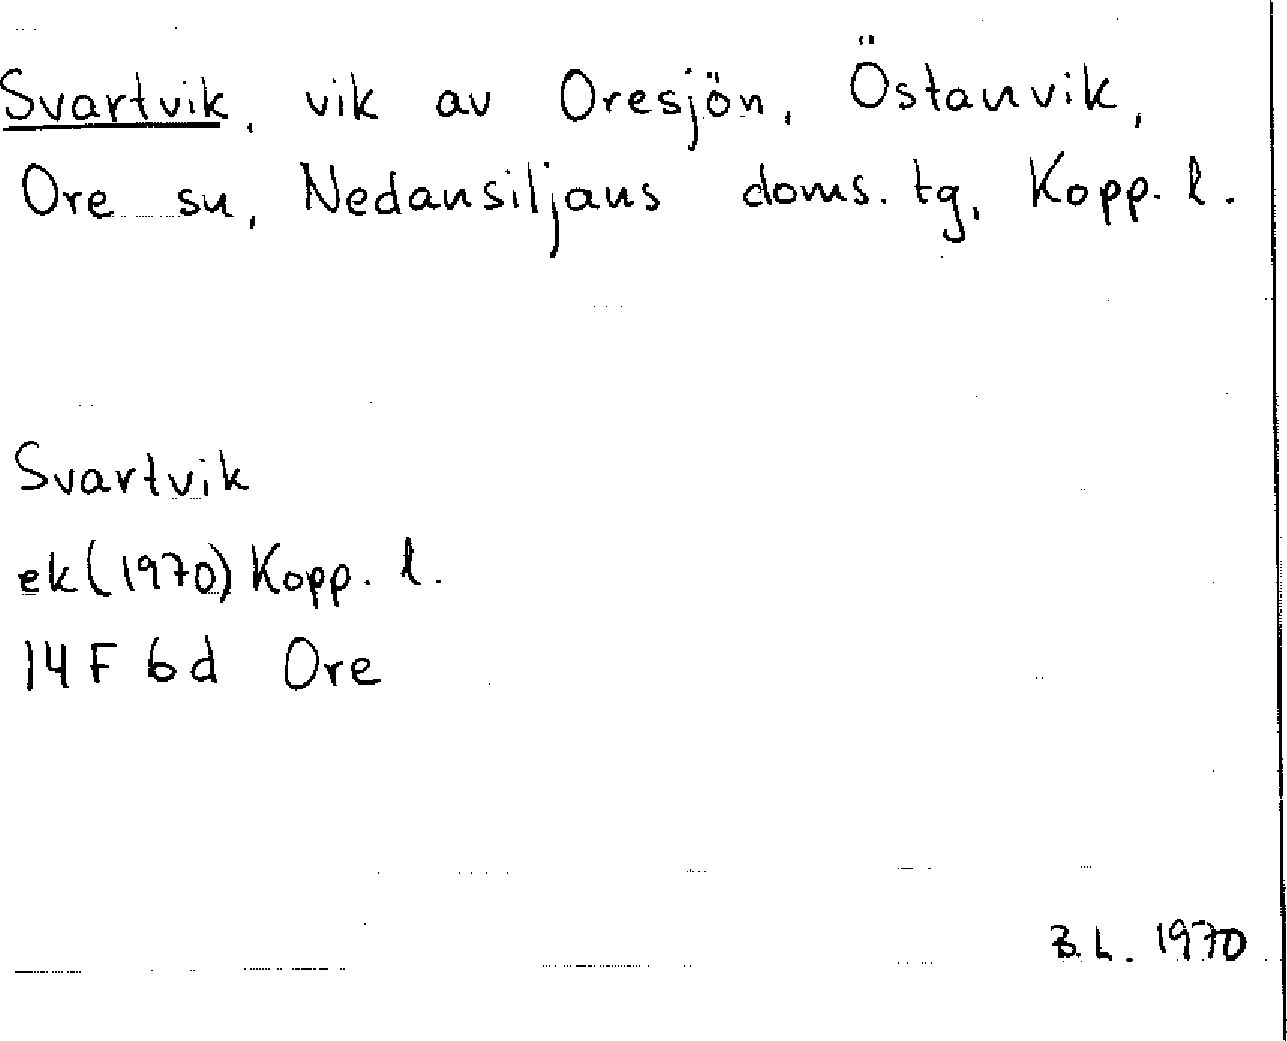 Svartvik, vik av Oresjön, Östanvik,
Ore sn, Nedansiljans doms. tg, Kopp. l.
Svartvik
ek (1970) Kopp. l.
14 F 6 d Ore
B.L. 1970